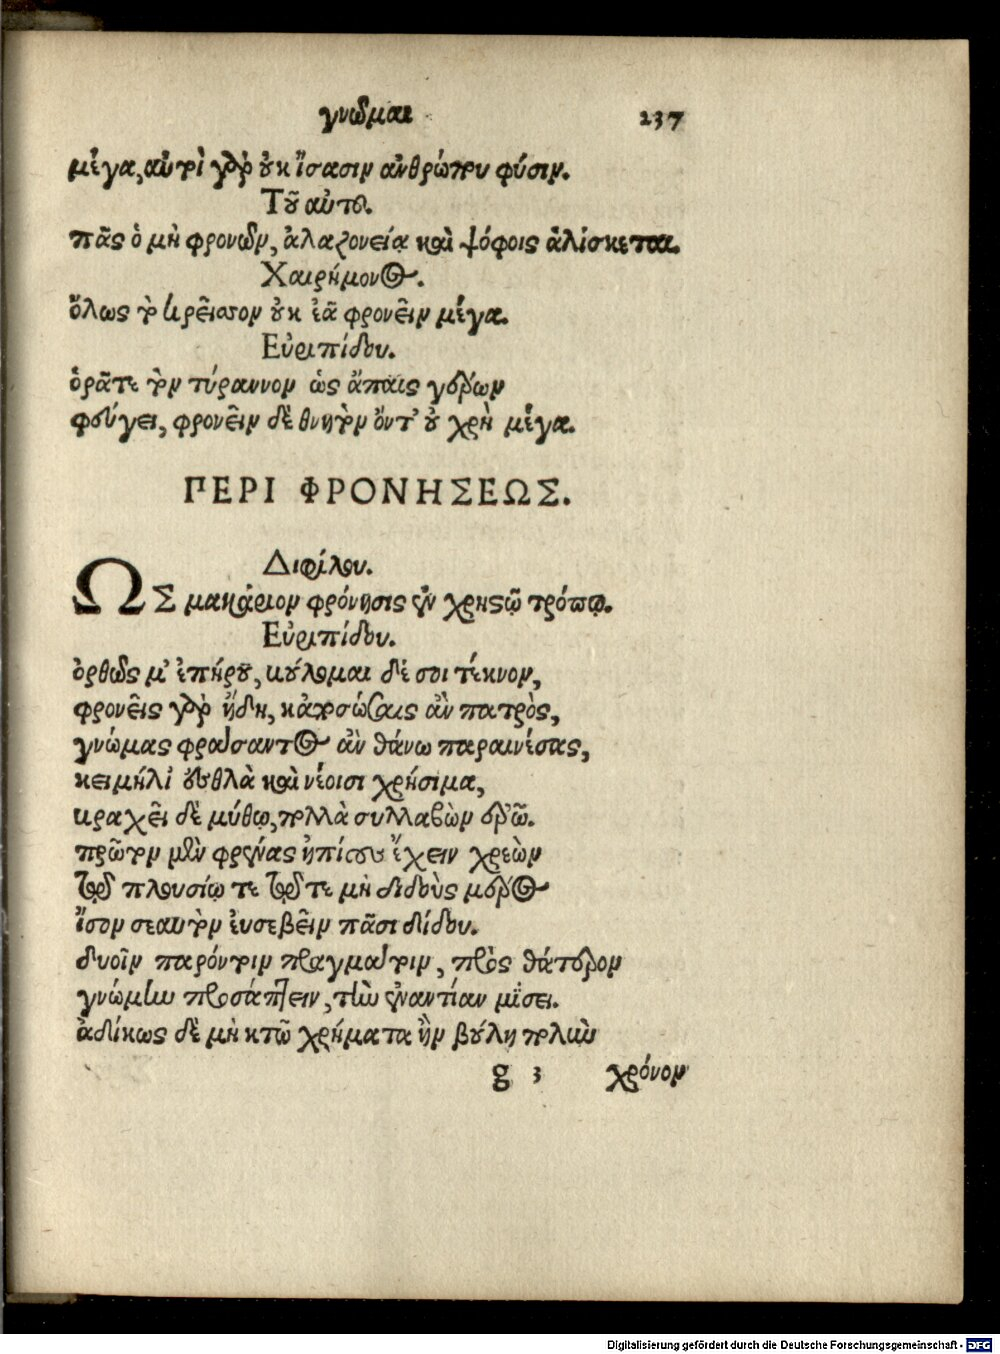 γνῶμαι 237
μέγα, αὐτοὶ γὰρ οὐκ ἴσασιν ἀνθρώπου φύσιν.
Τοῦ αὐτοῦ.
πᾶς ὁ μὴ φρονῶν, ἀλαζονείᾳ καὶ ψόφοις ἁλίσκεται.
Χαιρήμονος.
ὅλως τὸ κρεῖσσον οὐκ ἐᾶ φρονεῖν μέγα.
Εὐριπίδου.
ὁρᾶτε τὸν τύραννον ὡς ἄπαις γέρων
φεύγει, φρονεῖν δὲ θνητὸν ὄντ' οὐ χρὴ μέγα.
ΠΕΡΙ ΦΡΟΝΗΣΕΩΣ.
Διφίλου.
ΩΣ μακάριον φρόνησις ἐν χρηστῷ τρόπῳ.
Εὐριπίδου.
ὀρθῶς μ' ἐπήρου, βούλομαι δέ σοι τέκνον,
φρονεῖς γὰρ ἤδη, κἀποσώσαις ἂν πατρὸς,
γνώμας φράσαντος ἂν θάνω παραινέσας,
κειμήλι' ἐσθλὰ καὶ νέοισι χρήσιμα,
βραχεῖ δὲ μύθῳ, πολλὰ συλλαβὼν ἐρῶ.
πρῶτον μὲν φρένας ἠπίους ἔχειν χρεὼν
τῷ πλουσίῳ τε τῷ τε μὴ διδοὺς μέρος
ἴσον σεαυτὸν εὐσεβεῖν πᾶσι δίδου.
δυοῖν παρόντοιν πραγμάτοιν, πρὸς θάτερον
γνώμην προσάπτειν, τὴν ἐναντίαν μίσει.
ἀδίκως δὲ μὴ κτῶ χρήματα ἢν βούλῃ πολὺν
g 3 χρόνον
Digitalisierung gefördert durch die Deutsche Forschungsgemeinschaft - DFG